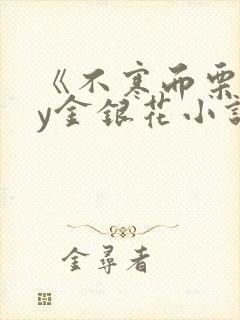 《不寒而栗
y金银花小说
金寻者